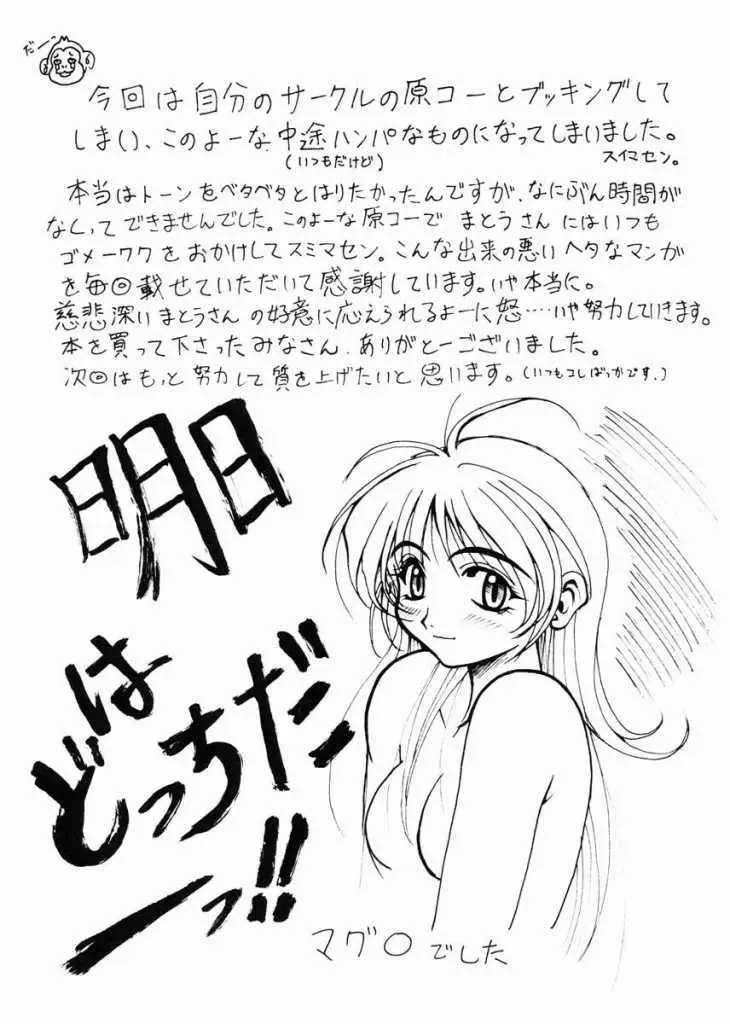 だーー
今回は自分のサークルの原コーとブッキングして
しまい、このよーな中途ハンパなものになってしまいました。
(いつもだけど)
スイマセン。
本当はトーンをベタベタとはりたかったんですが、なにぶん時間が
なくってできませんでした。このよーな原コーで まとうさん にはいつも
ゴメーワクをおかけしてスミマセン。こんな出来の悪いヘタなマンガ
を毎回載せていただいて感謝しています。いや本当に。
慈悲深いまとうさんの好意に応えられるよーに怒……いや努力していきます。
本を買って下さったみなさん、ありがとーございました。
次回はもっと努力して質を上げたいと思います。(いつもコレばっかです。)
明日
は
どっちだ
ーっ!!
マグ〇でした